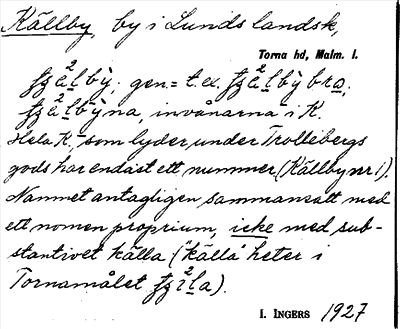 Källby, by i Lunds landsk,
Torna hd, Malm. l.
gen. = t.ex.
invånarna i K.
Hela K., som lyder under Trollebergs
gods har endast ett nummer (Källby nr 1).
Namnet antagligen sammansatt med
ett nomen proprium, icke med sub-
stantivet källa ("källa" heter i
Tornamålet
I. INGERS 1927